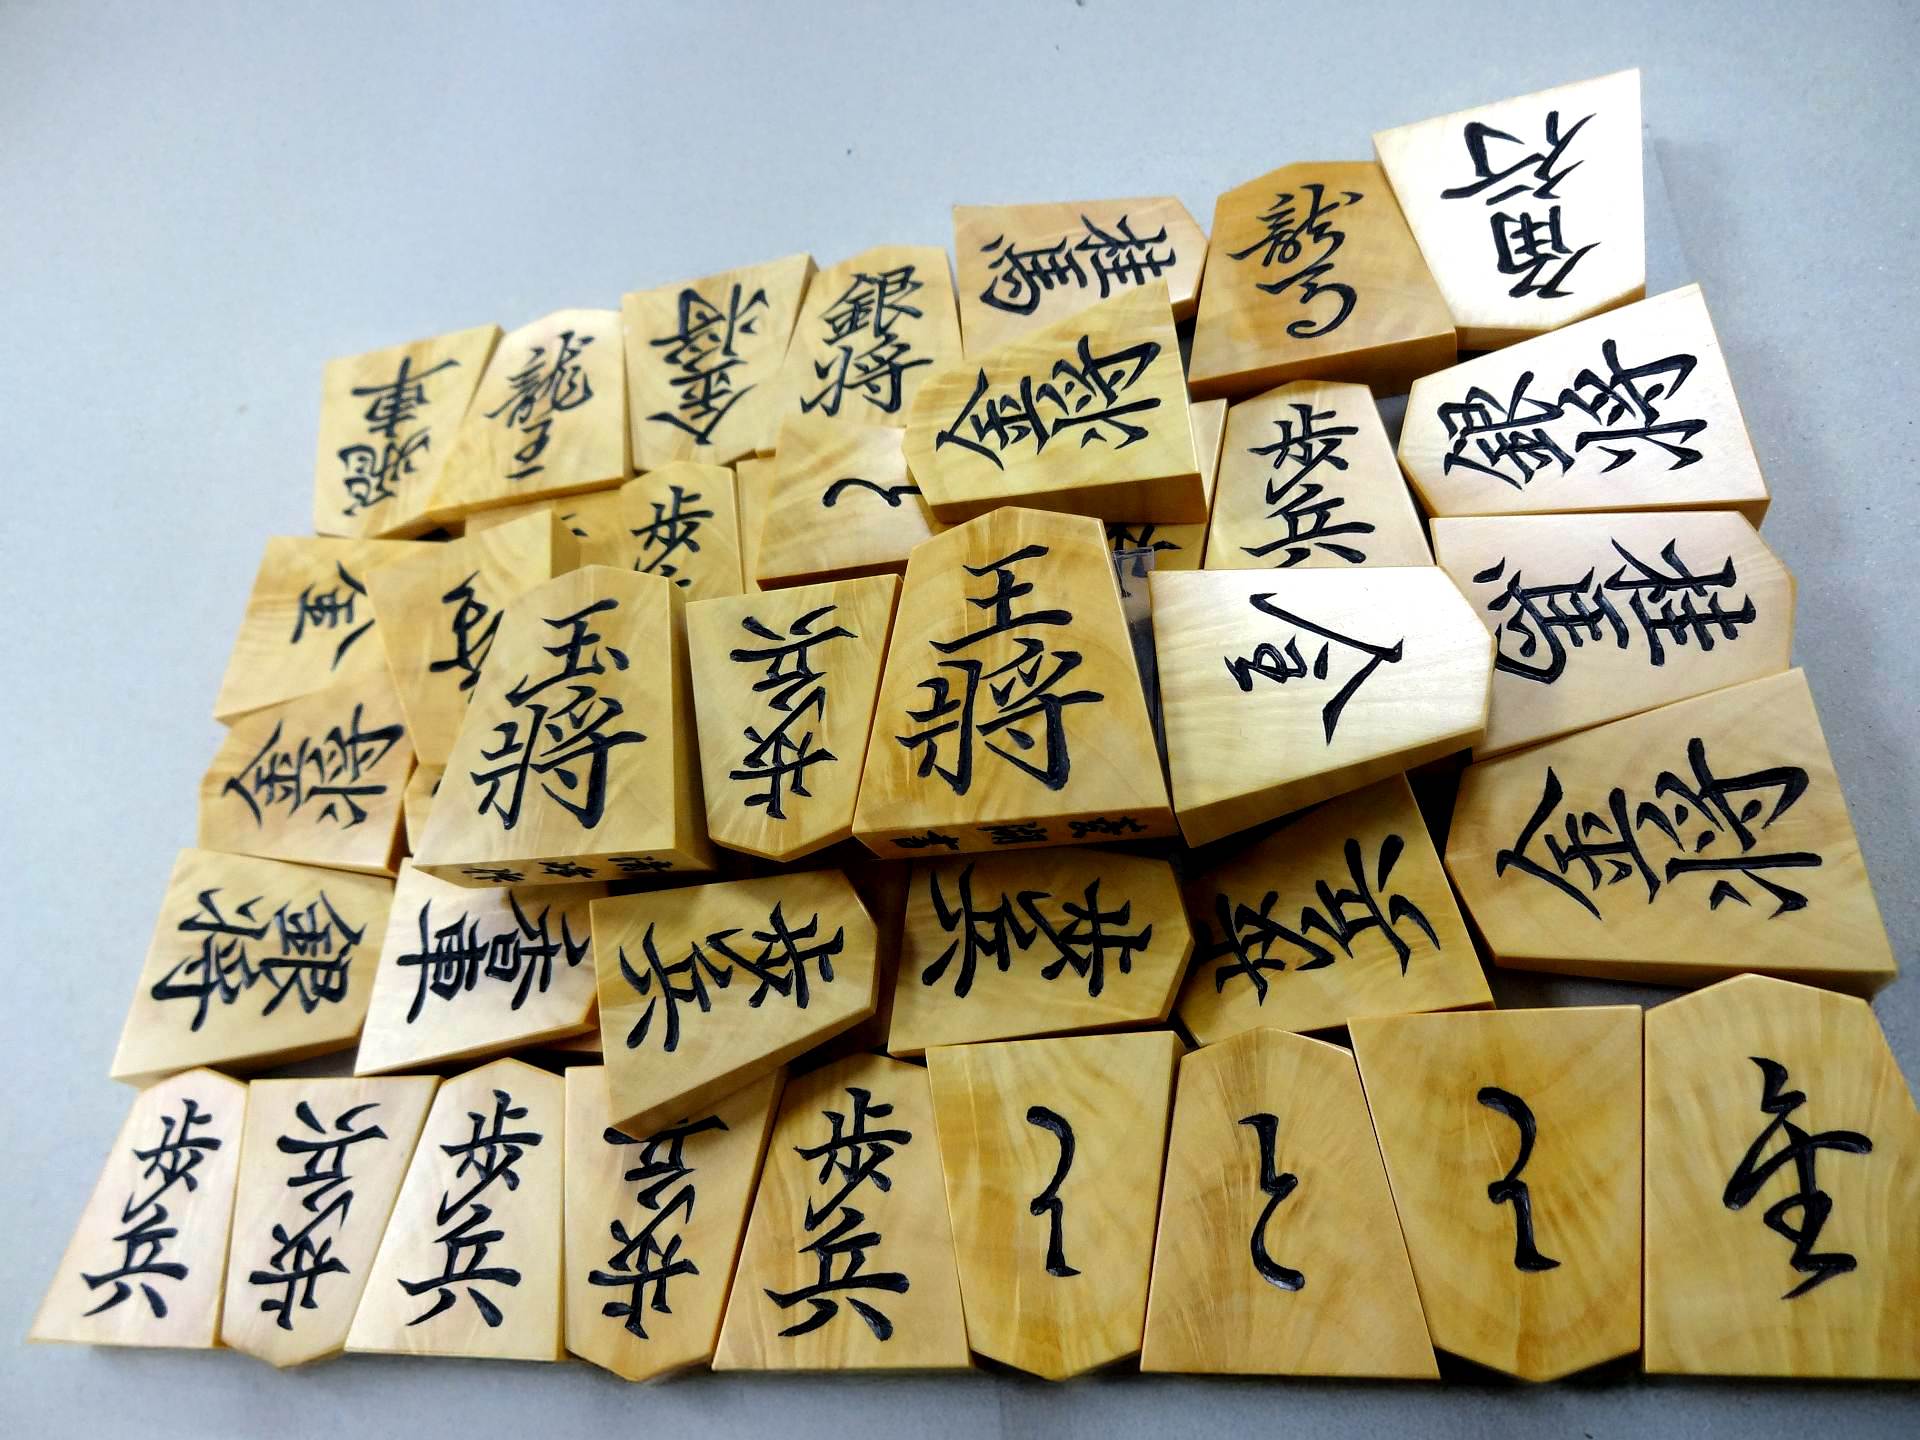 香車
龍王
金将
銀将
桂馬
龍馬
角行
歩
と
金将
歩兵
銀将
金
玉将
歩兵
王将
桂馬
金将
金将
銀将
香車
歩兵
歩兵
歩兵
歩兵
歩兵
歩兵
歩兵
歩兵
と
と
と